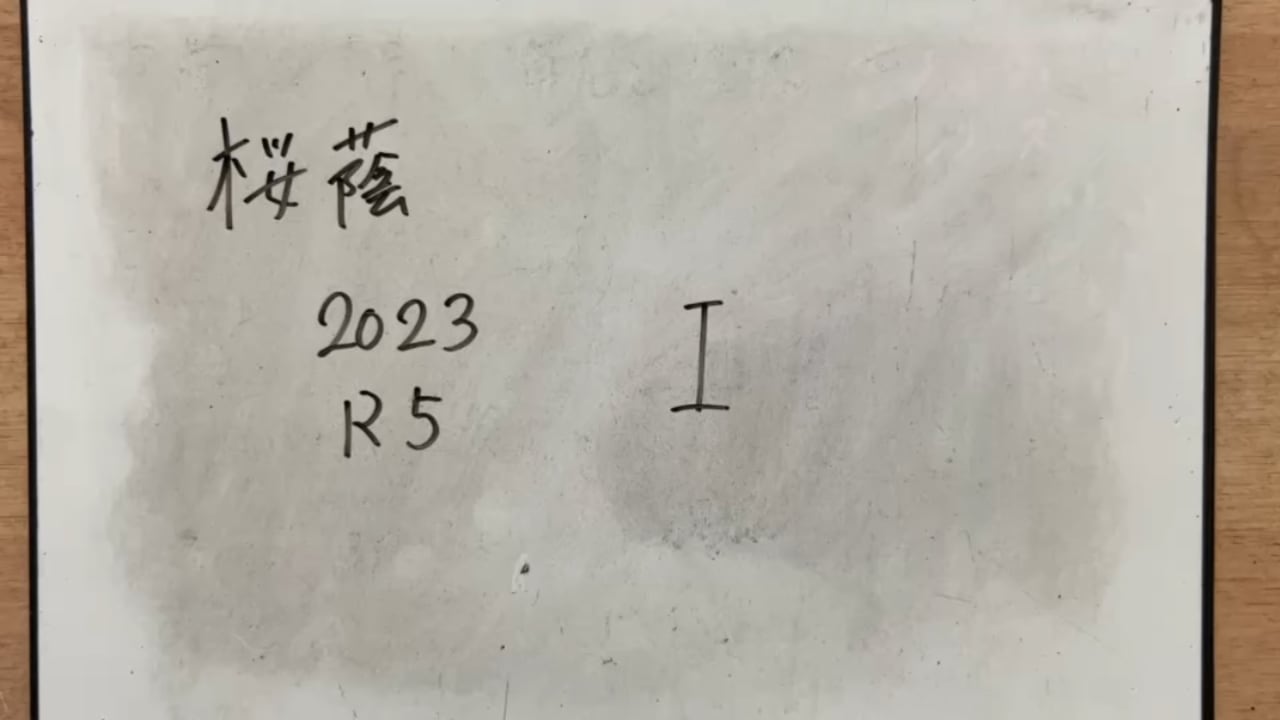 桜蔭
2023
R5
I